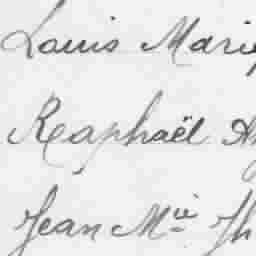 Louis Marie
Reaphaël
Jean Mie Th